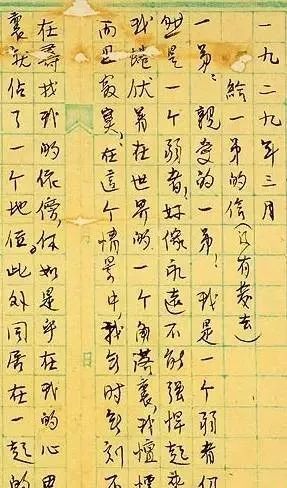 一九二九年三月
給一弟的信(没有發去)
一弟,親愛的一弟!我是一个弱者
然是一个弱者,好像永遠不能強悍起來
我蜷伏着在世界的一个角落裏,我
而且 實,在這个情景中,我無时無刻不
在尋找我的依傍,你如是乎在我的心里
裏就佔了一个地位。此外同居在一起的